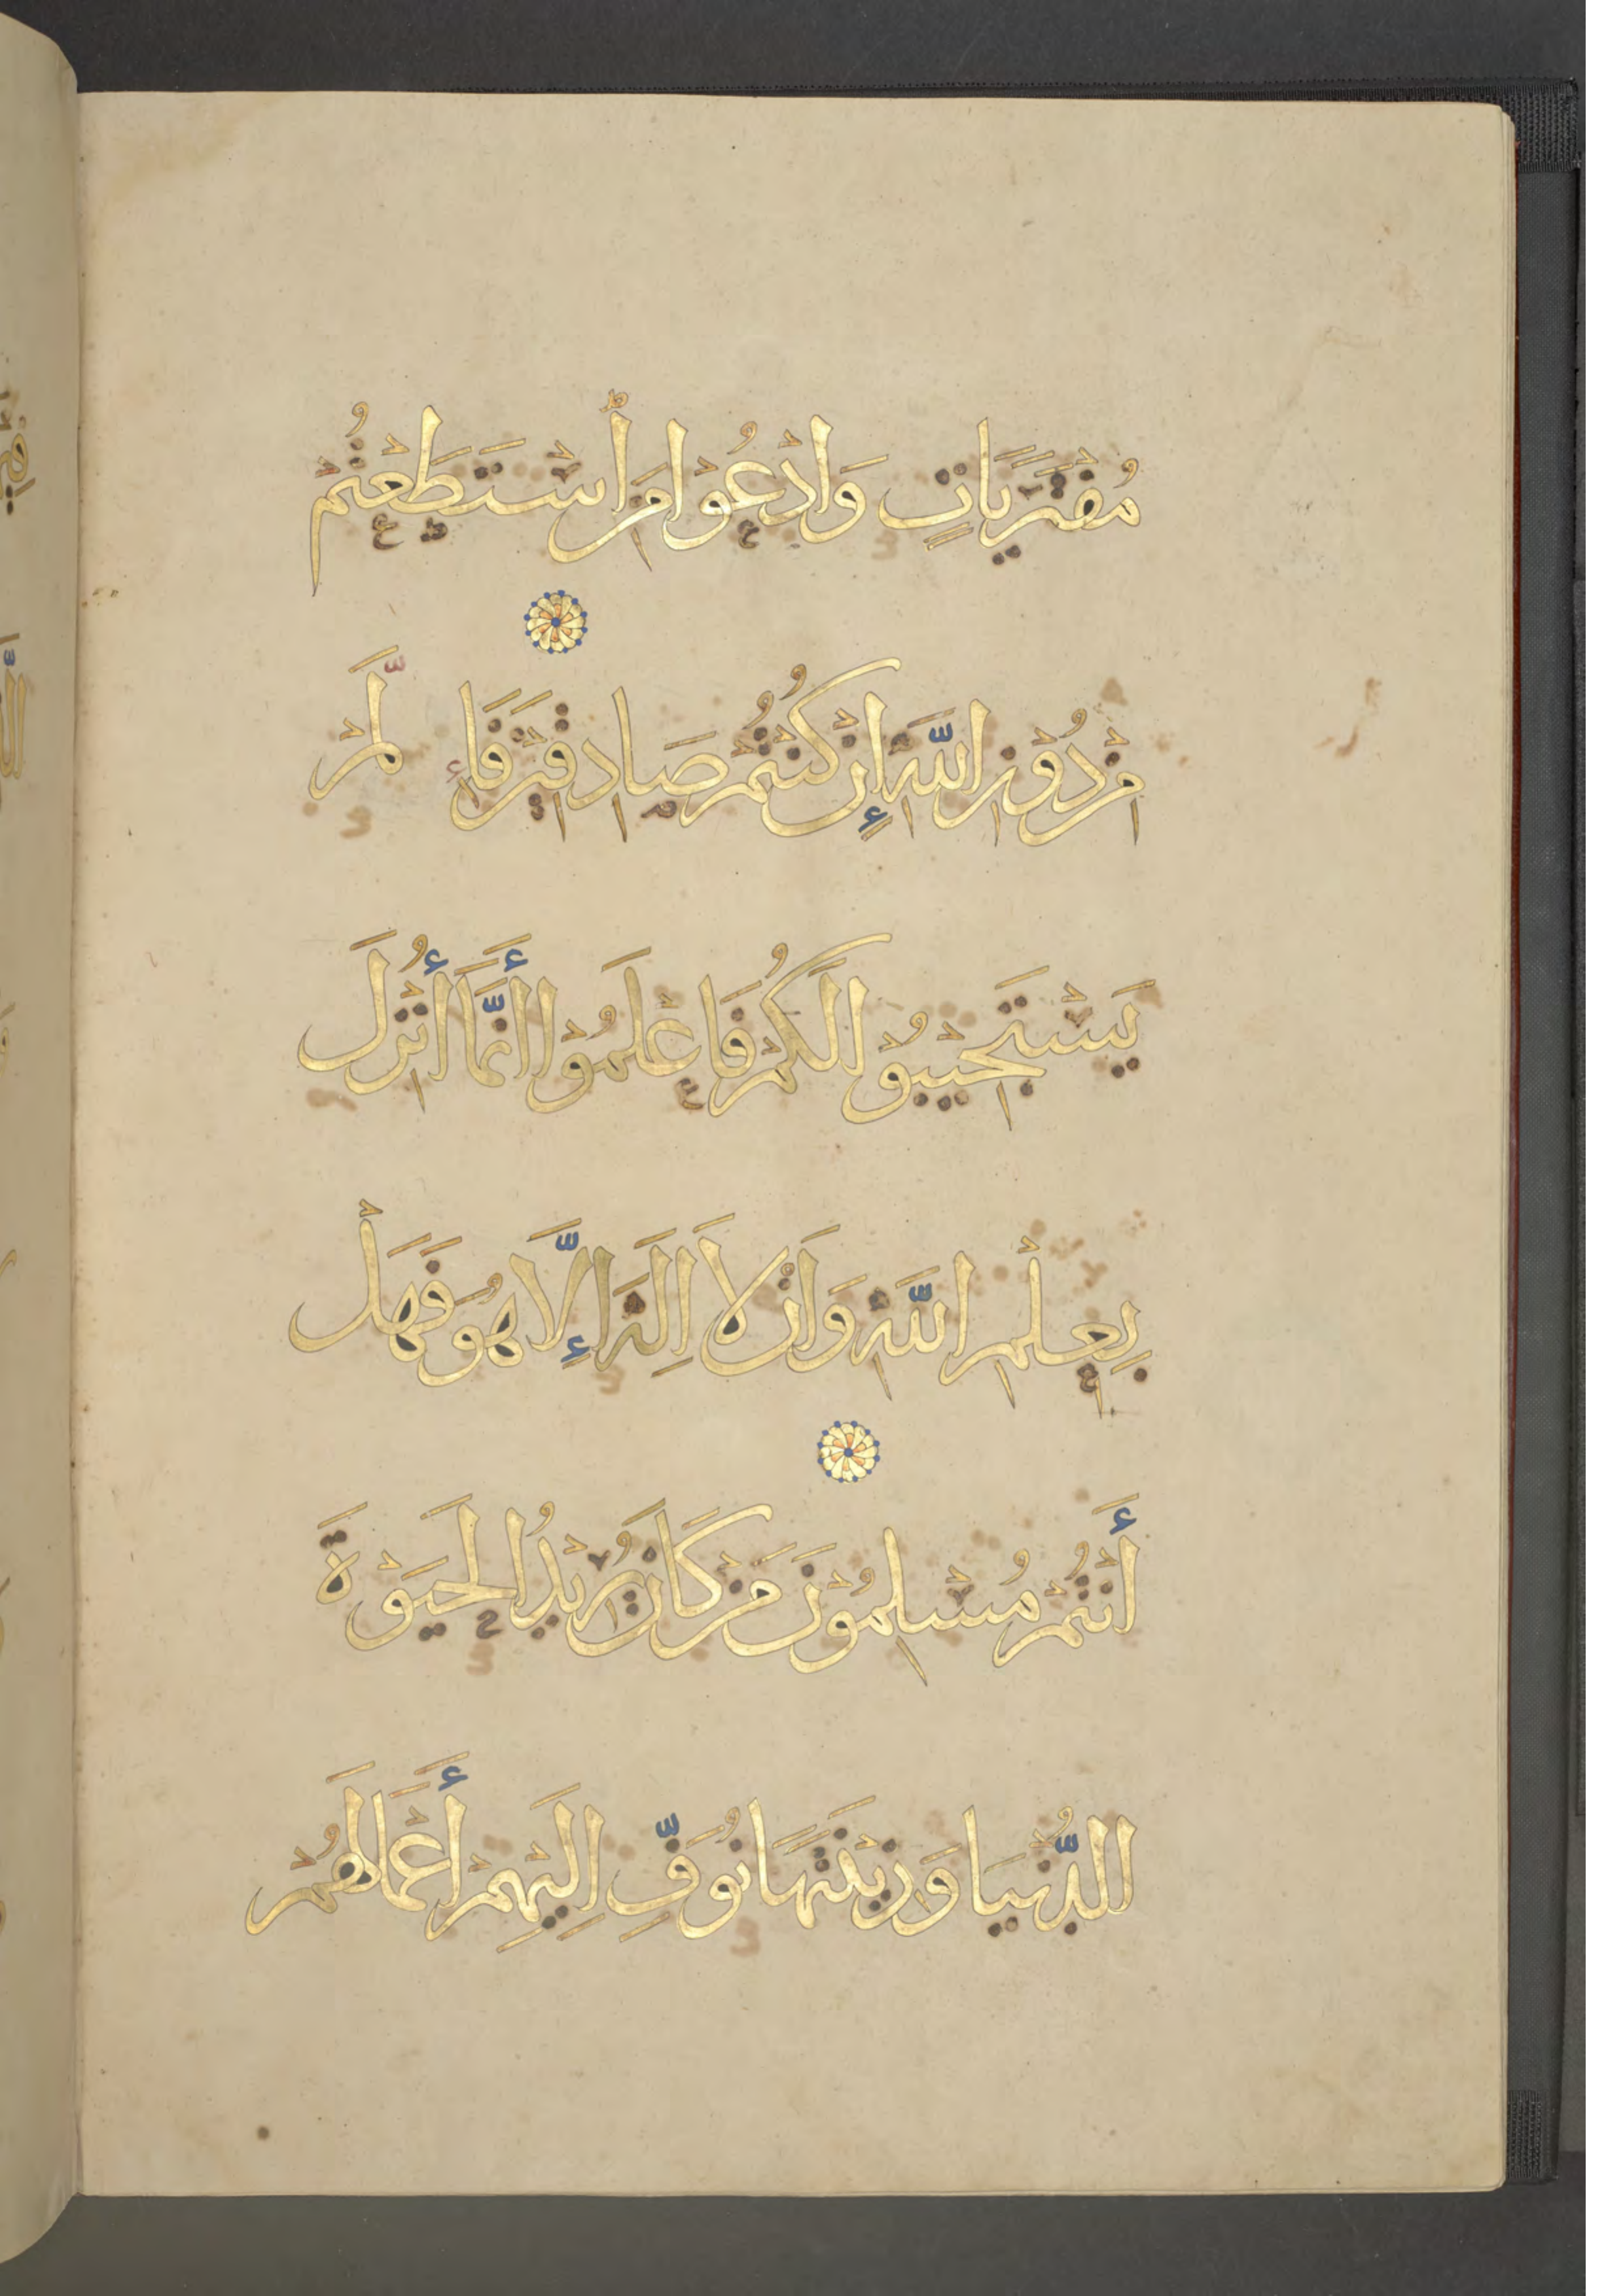 مُفْتَرَيَاتٍ وَادْعُوْا مَنِ اسْتَطَعْتُمْ
مِنْ دُوْنِ اللَّهِ إِنْ كُنْتُمْ صَادِقِيْنَ فَإِلَّمْ
يَسْتَجِيْبُوْا لَكُمْ فَاعْلَمُوْا أَنَّمَا أُنْزِلَ
بِعِلْمِ اللَّهِ وَاَنْ لَا اِلَهَ إِلَّا هُوَ فَهَلْ
أَنْتُمْ مُسْلِمُوْنَ مَنْ كَانَ يُرِيْدُ الْحَيَوْةَ
الدُّنْيَا وَزِيْنَتَهَا نُوَفِّ اِلَيْهِمْ أَعْمَالَهُمْ